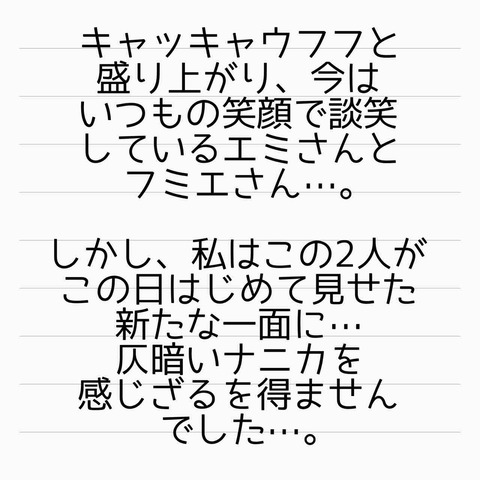 キャッキャウフフと
盛り上がり、今は
いつもの笑顔で談笑
しているエミさんと
フミエさん…。
しかし、私はこの2人が
この日はじめて見せた
新たな一面に…
仄暗いナニカを
感じざるを得ません
でした…。